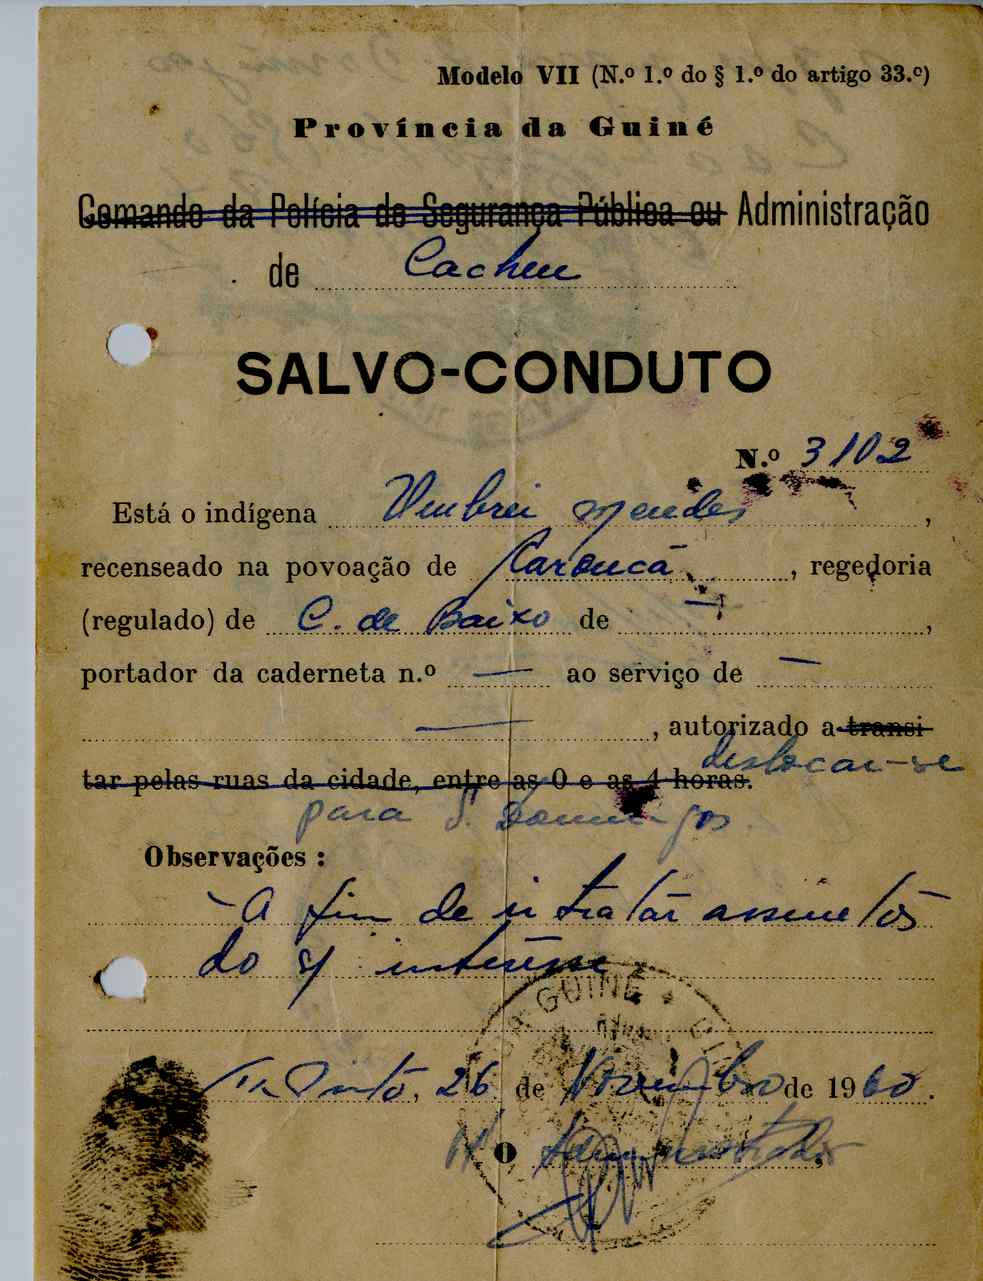 Modelo VII (N.º 1.º do § 1.º do artigo 33.º)
Província da Guiné
Comando da Polícia de Segurança Pública ou Administração
de Cacheu
SALVO-CONDUTO
N.º 3102
Está o indígena Umbrei Mendes,
recenseado na povoação de Caroncá, regedoria
(regulado) de C. de Baixo de —,
portador da caderneta n.º — ao serviço de —
—, autorizado a transi
tar pelas ruas da cidade, entre as 0 e as 4 horas. deslocar-se
para S. Domingos
Observações:
- A fim de ir tratar assuntos
do s/ interêsse
GUINÉ
Tx Pinto, 26 de Novembro de 1960.
O Administrador,